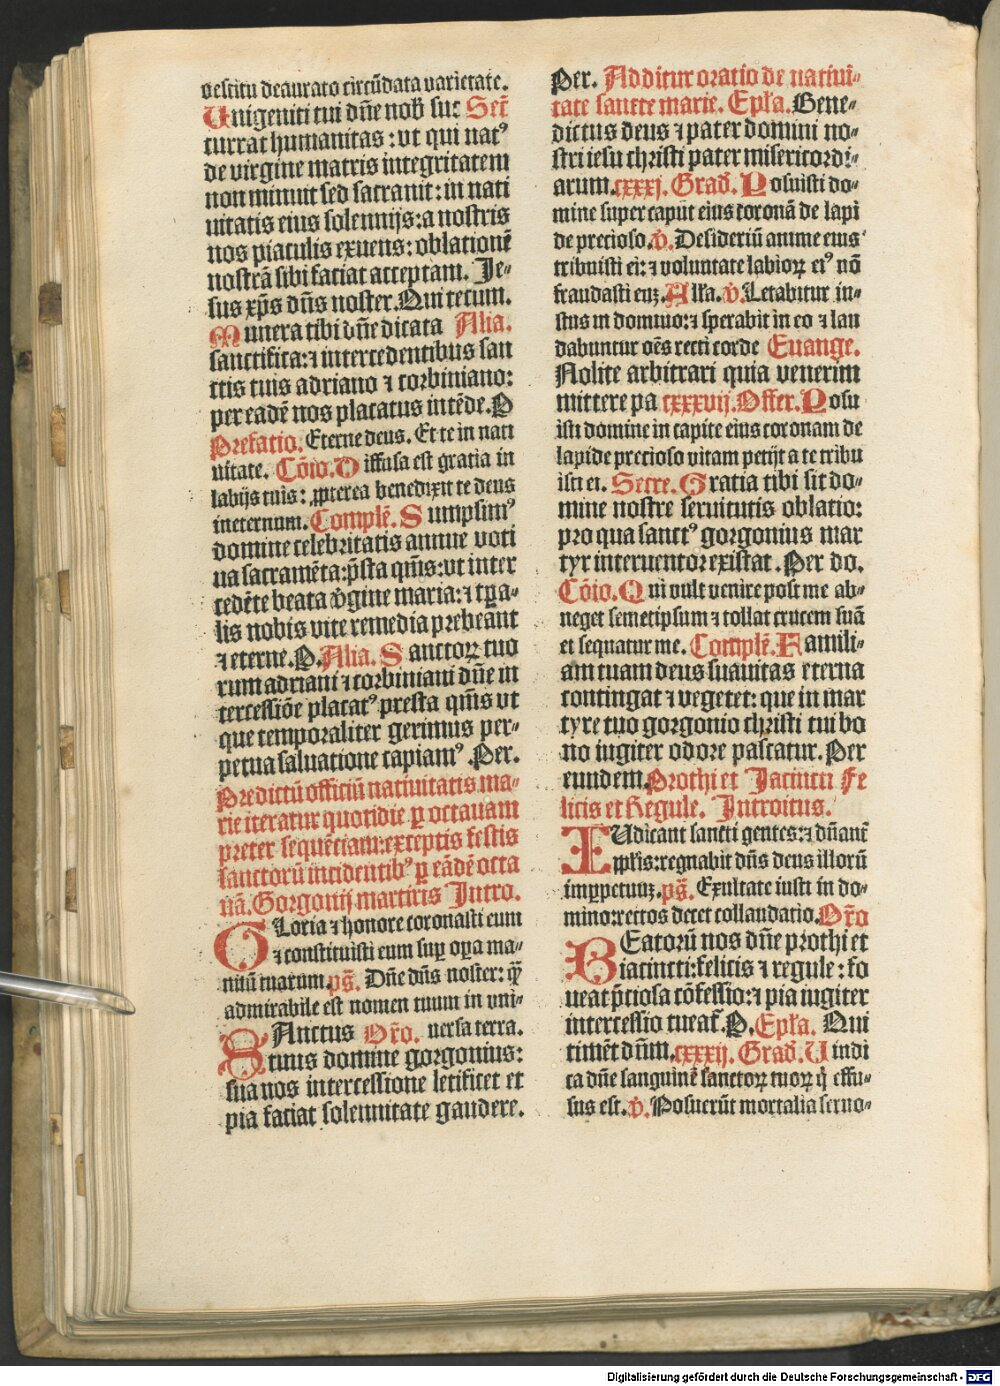 vestitu deaurato circūdata varietate.
Unigeniti tui dñe nob̄ suc̄ Secr̄
currat humanitas: vt qui natꝰ
de virgine matris integritatem
non minuit sed sacrauit: in nati
uitatis eius solennijs: a nostris
nos piaculis exuens: oblationē
nostrā sibi faciat acceptam. Je-
sus xp̄s dn̄s noster. Qui tecum.
Munera tibi dn̄e dicata Alia.
sanctifica: ⁊ intercedentibus san
ctis tuis adriano ⁊ corbiniano:
per eadē nos placatus intēde. P
Prefatio. Eterne deus. Et te in nati
uitate. Cōio. Diffusa est gratia in
labijs tuis: ꝓpterea benedixit te deus
ineternum. Complē. Sumpsimꝰ
domine celebritatis annue voti
ua sacramēta: p̄sta qm̄s: vt inter
cedēte beata v̄gine maria: ⁊ tp̄a-
lis nobis vite remedia prebeant
⁊ eterne. P. Alia. Sanctoꝝ tuo
rum adriani ⁊ corbiniani dn̄e in
tercessiōe placatꝰ presta qm̄s vt
que temporaliter gerimus per-
petua saluatione capiamꝰ. Per.
Predictū officiū natiuitatis ma-
rie iteratur quotidie ꝑ octauam
preter sequētiam: exceptis festis
sanctorū incidentibꝰ ꝑ eādē octa
uā. Gorgonij martiris Intro.
GLoria ⁊ honore coronasti eum
⁊ constituisti eum suꝑ oꝑa ma-
nuū tuarum. ps̄. Dn̄e dn̄s noster: q̄ꝫ
admirabile est nomen tuum in vni-
SAnctus Or̄o. uersa terra.
tuus domine gorgonius:
sua nos intercessione letificet et
pia faciat solennitate gaudere.
Per. Additur oratio de natiui-
tate sancte marie. Ep̄la. Bene-
dictus deus ⁊ pater domini no-
stri iesu christi pater misericordi-
arum. cxxxj. Grad̄. Posuisti do-
mine super caput eius coronā de lapi
de precioso. v̄. Desideriū anime eius
tribuisti ei: ⁊ voluntate labioꝝ eiꝰ nō
fraudasti euꝫ. Alľa. v̄. Letabitur iu-
stus in domino: ⁊ sperabit in eo ⁊ lau
dabuntur oēs recti corde Euange.
Nolite arbitrari quia venerim
mittere pa cxxxvij. Offer. Posu
isti domine in capite eius coronam de
lapide precioso vitam petijt a te tribu
isti ei. Secre. Gratia tibi sit do-
mine nostre seruitutis oblatio:
pro qua sanctꝰ gorgonius mar
tyr interuentor existat. Per do.
Cōio. Qui vult venire post me ab-
neget semetipsum ⁊ tollat crucem suā
et sequatur me. Complē. Famili-
am tuam deus suauitas eterna
contingat ⁊ vegetet: que in mar
tyre tuo gorgonio christi tui bo
no iugiter odore pascatur. Per
eundem. Prothi et Jacincti Fe
licis et Regule. Introitus.
IUdicant sancti gentes: ⁊ dn̄anť
ppľis: regnabit dn̄s deus illorū
imꝑpetuuꝫ. ps̄. Exultate iusti in do-
mino: rectos decet collaudatio. Or̄o
BEatorū nos dn̄e prothi et
iacincti: felicis ⁊ regule: fo
ueat p̄ciosa cōfessio: ⁊ pia iugiter
intercessio tueať. P. Ep̄la. Qui
timēt dn̄m. cxxxij. Grad̄. Uindi
ca dn̄e sanguinē sanctoꝝ tuoꝝ q̄ effu-
sus est. v̄. Posuerūt mortalia seruo-
Digitalisierung gefördert durch die Deutsche Forschungsgemeinschaft - DFG